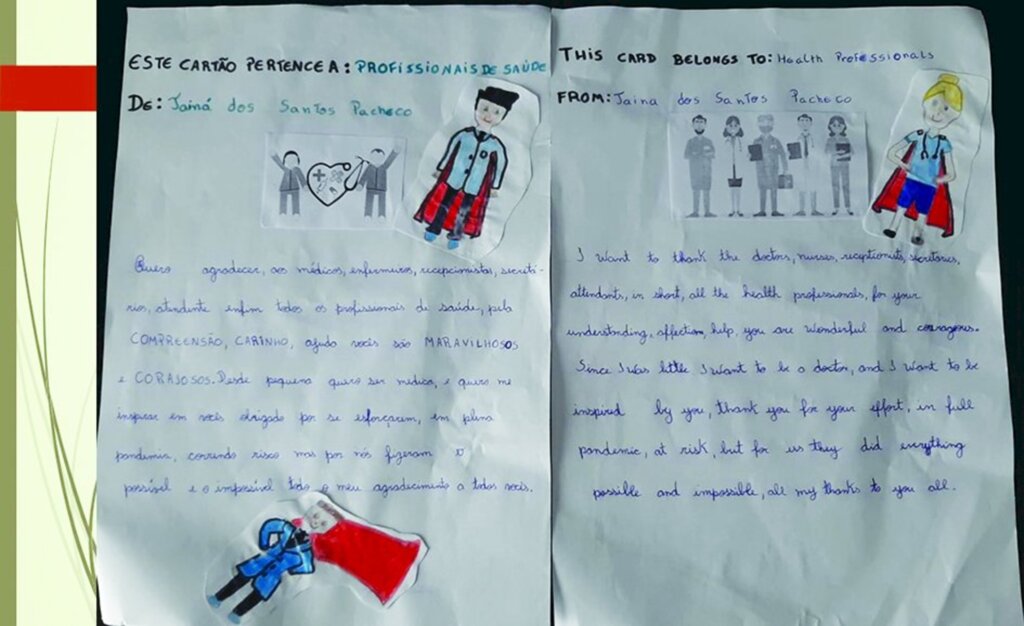 ESTE CARTÃO PERTENCE A: PROFISSIONAIS DE SAÚDE
DE: Jainá dos Santos Pacheco
Quero agradecer, aos médicos, enfermeiros, recepcionistas, secretá-
rios, atendente enfim todos os profissionais de saúde, pela
COMPREENSÃO, CARINHO, ajuda vocês são MARAVILHOSOS
e CORAJOSOS. Desde pequena quero ser médica, e quero me
inspirar em vocês obrigado por se esforçarem, em plena
pandemia, correndo risco mas por nós fizeram o
possível e o impossível todo o meu agradecimento a todos vocês.
THIS CARD BELONGS TO: Health Professionals
FROM: Jaina dos Santos Pacheco
I want to thank the doctors, nurses, receptionists, secretaries,
attendants, in short, all the health professionals, for your
understanding, affection, help, you are wonderful and courageous.
Since I was little I want to be a doctor, and I want to be
inspired by you, thank you for your effort, in full
pandemic, at risk, but for us they did everything
possible and impossible, all my thanks to you all.